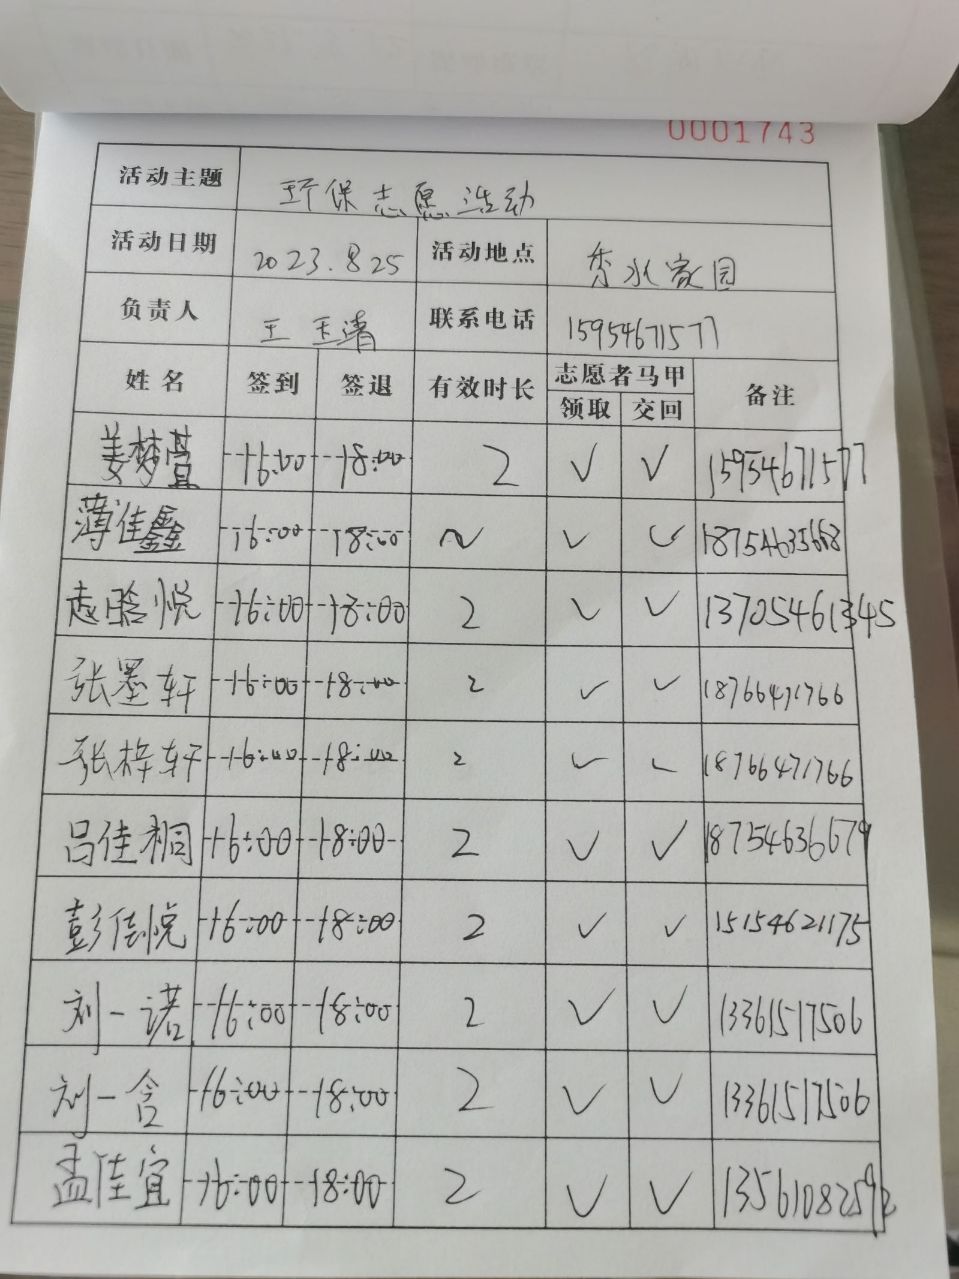 0001743
活动主题 环保志愿活动
活动日期 2023.8.25 活动地点 秀水家园
负责人 王玉清 联系电话 15954671577
姓名 签到 签退 有效时长 志愿者马甲 备注
领取 交回
姜梦萱 16:00 18:00 2 √ √ 15954671577
薄佳鑫 16:00 18:00 2 √ √ 18754635668
赵晗悦 16:00 18:00 2 √ √ 13705461345
张墨轩 16:00 18:00 2 √ √ 18766471766
张梓轩 16:00 18:00 2 √ √ 18766471766
吕佳桐 16:00 18:00 2 √ √ 18754636679
彭佳悦 16:00 18:00 2 √ √ 15154621175
刘一诺 16:00 18:00 2 √ √ 13361517506
刘一含 16:00 18:00 2 √ √ 13361517506
孟佳宜 16:00 18:00 2 √ √